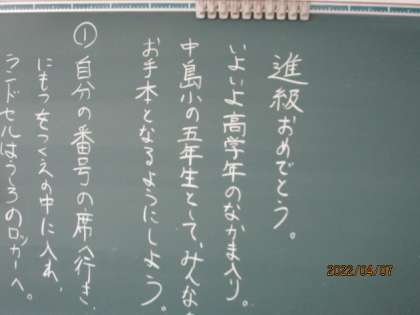 進級おめでとう。
いよいよ高学年のなかま入り。
中島小の五年生として、みんなの
お手本となるようにしよう。
① 自分の番号の席へ行き、
にもつをつくえの中に入れ、
ランドセルはうしろのロッカーへ。
2022/04/07